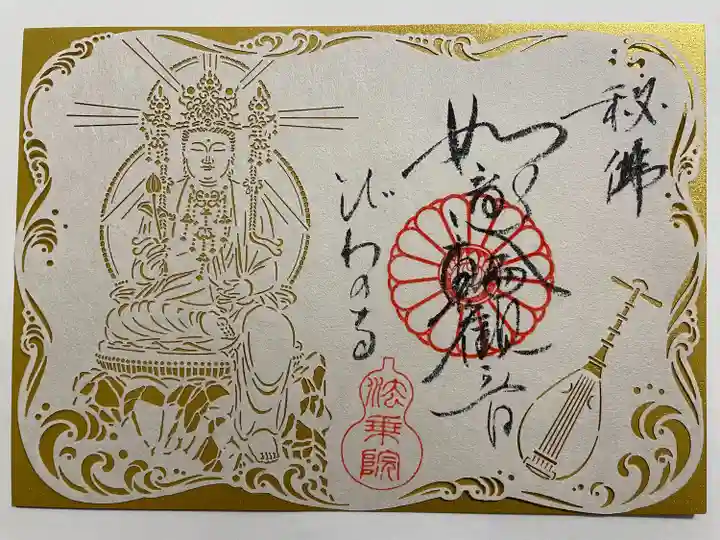 秘佛
如意輪観音
びわの
法乗院